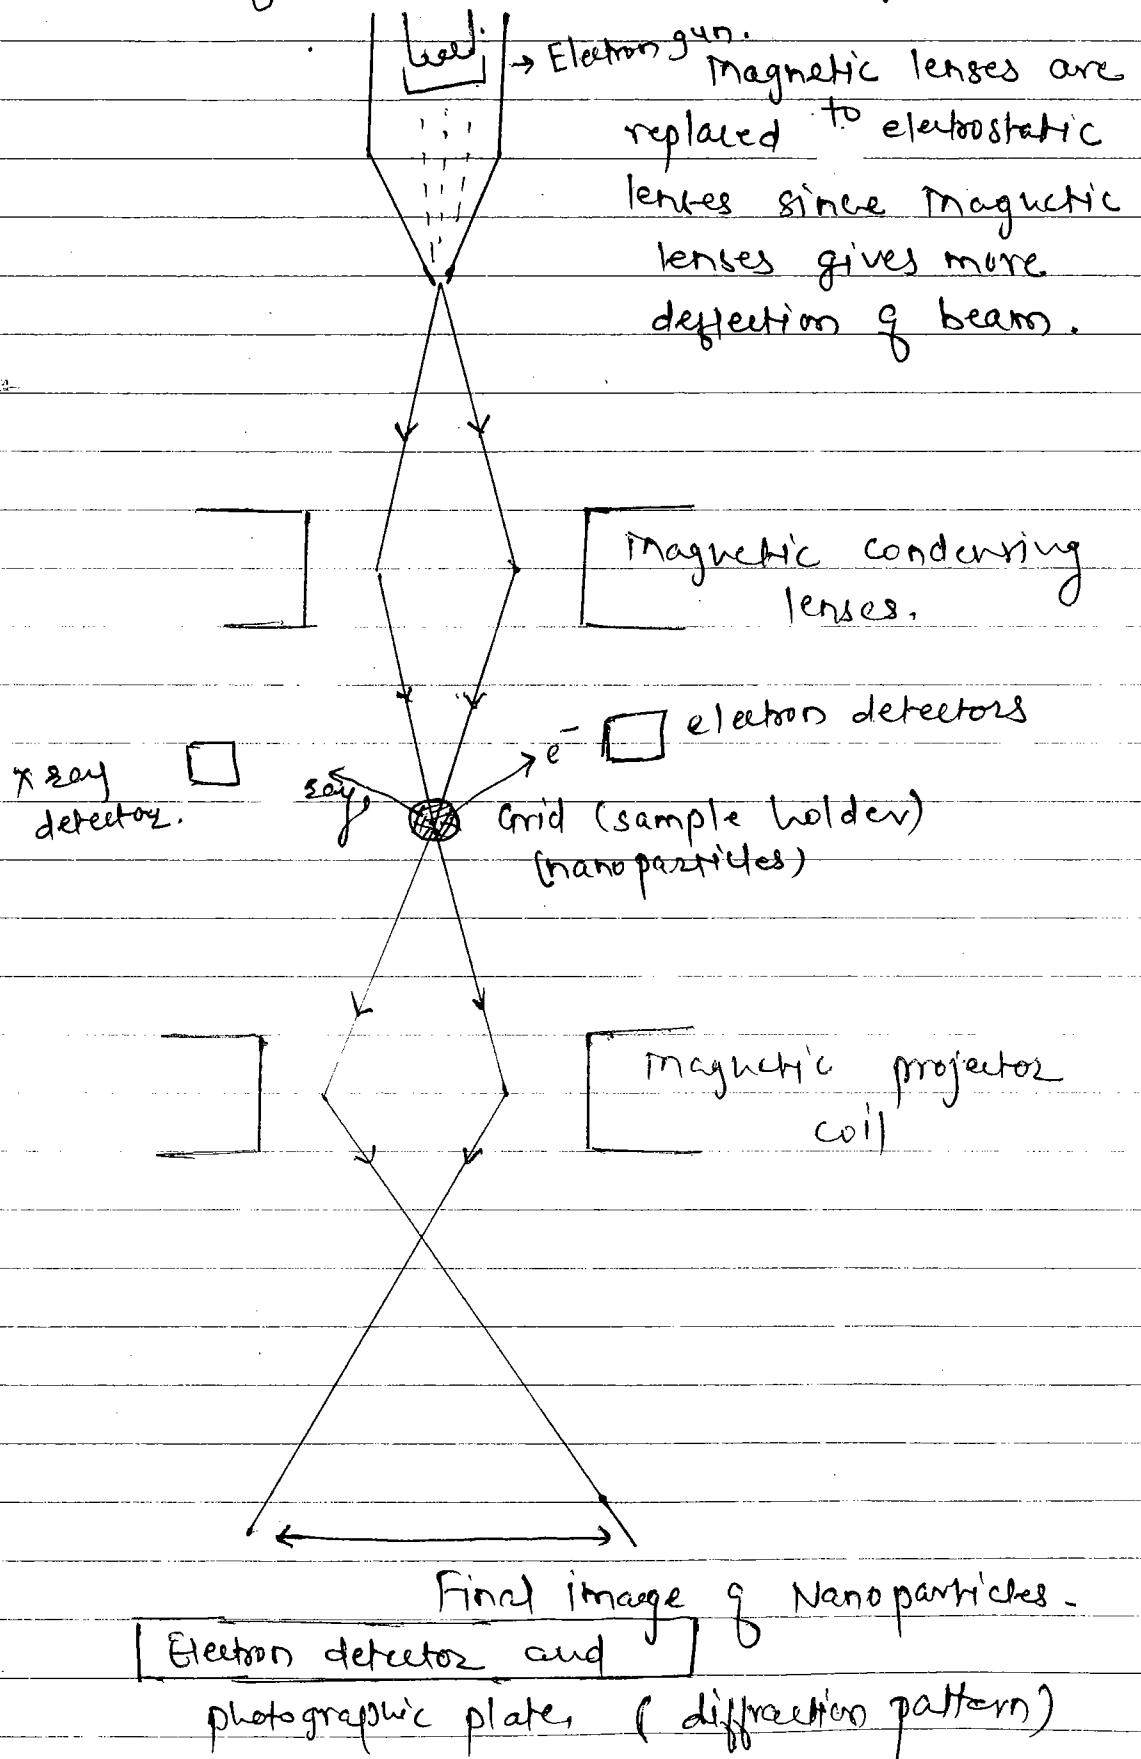 → Electron gun.
Magnetic lenses are
replaced to electrostatic
lenses since Magnetic
lenses gives more
deflection of beam.
Magnetic condensing
lenses.
e⁻ electron detectors
x ray
detector.
ray,
Grid (sample holder)
(nanoparticles)
Magnetic projector
coil
Final image of Nanoparticles.
Electron detector and
photographic plate, (diffraction pattern)